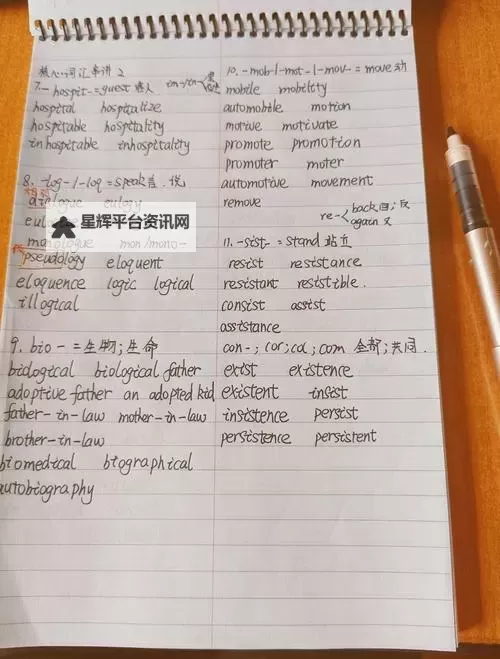 核心词汇串讲 2
7. - hospit- = guest 客人 im-/in-
hospital hospitalize
hospitable hospitality
inhospitable inhospitality
8. -log-/-loq = speak 言、说
eulogy
mon/mono-
pseudology eloquent
eloquence logic logical
illogical
9. bio- = 生物; 生命
biological biological father
adoptive father an adopted kid
father-in-law mother-in-law
brother-in-law
biomedical biographical
autobiography
10. -mob-/-mot-/-mov- = move 动
mobile mobility
automobile motion
motive motivate
promote promotion
promoter moter
automotive movement
remove
re- back 回; 反
again 又
11. -sist- = stand 站立
resist resistance
resistant resistible.
consist assist
assistance
con-; cor; col; com 全部; 共同.
exist existence
existent insist
insistence persist
persistence persistent
星辉平台资讯网